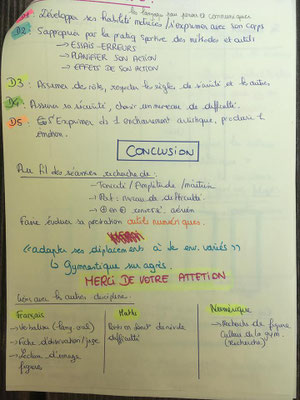 D1: Développer ses habiletés motrices s'exprimer avec son corps
D2: S'approprier par la pratiq Sportive des méthodes et outils
→ ESSAIS-ERREURS
→ PLANIFIER SON ACTION
→ EFFETS DE SON ACTION
D3: Assumer des rôles, respecter les règles de sécurité et les autres
D4: Assurer sa sécurité, choisir un niveau de difficulté.
D5: S'Exprimer ds 1 enchainement artistique, produire 1
émotion.
CONCLUSION
Au fil des séances recherche de:
- Tonicité / Amplitude / maîtrise
niveau de difficulté
en renversé, aérien
Faire évoluer sa prestation outils numériques.
<<adapter ses déplacements à ≠ env. variés>>
↳ Gymnastique sur agrès.
MERCI DE VOTRE ATTETION
Liens avec les autres disciplines:
Français
Maths
Numérique
→ Verbaliser (lang. oral)
→ Fiche d'observation/juge
→ Lecture d'image
figures
difficulté
→ Recherche de figure
Culture de la gym.
(recherche)